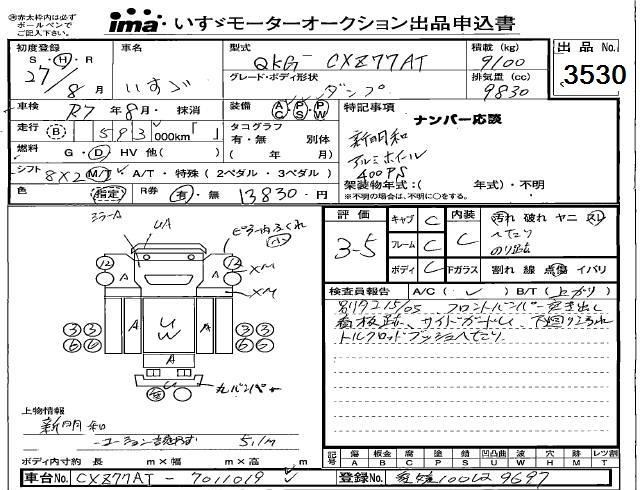 ※赤太枠内は必ず
ボールペンで
ご記入下さい。
ima・いすゞモーターオークション出品申込書
初度登録
S・H・R
27/8月
車名
いすゞ
型式
QKG- CXZ77AT
グレード・ボディ形状
ダンプ
積載 (kg)
9100
排気量 (cc)
9830
出品 No.
3530
車検
R7年8月・抹消
装備
AC PS PW
走行
B 593 000km「 」
タコグラフ
有・無 別体
( 年 月)
燃料
G・D HV 他( )
シフト
8X2 M/T A/T・特殊 (2ペダル・3ペダル)
色
指定
R券
有・無 13830-円
特記事項
ナンバー応談
新明和
アルミホイール
400PS
架装物年式:( 年式)・不明
※不明の場合は、不明に○をする。
ミラーA
UA
ピラー内ふくれ
小
12 A A 12
XM
A A
XM
3 3 A U W A 3 3
6 6 6 6
A
U
丸バンパー
上物情報
新明和
5.1m
ボディ内寸約 長 m×幅 m×高 m
評価
3-5
キャブ C
フレーム C
ボディ C
内装
C
汚れ 破れ ヤニ スレ
へたり
のり跡
下ガラス
割れ 線 点傷 イバリ
検査員報告
A/C( ✓ ) B/T(上がり)
フロントバンパー突き出し
看板跡、サイドガードU、
トルクロッドブッシュへたり、
記号
傷 A
板金 B
腐 C
塗 P
錆 S
凹凸曲 U
波 W
穴 H
跡 M
レツ割 T
車台No.
CXZ77AT - 7011019
登録No.
愛媛100は9697